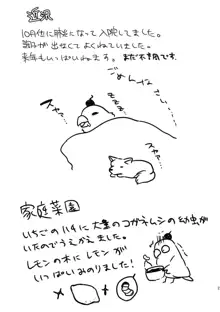 近況
10月位に肺炎になって入院してました。
声が出なくてよくねていました。
来年もいっぱいねます。まだ本調子です。
ごめんなさい
スヤァ…
スヤァ…
家庭菜園
いちごのハチに大量のコガネムシの幼虫が
いたのでうえかえました。
レモンの木にレモンが
いっぱいみのりました!